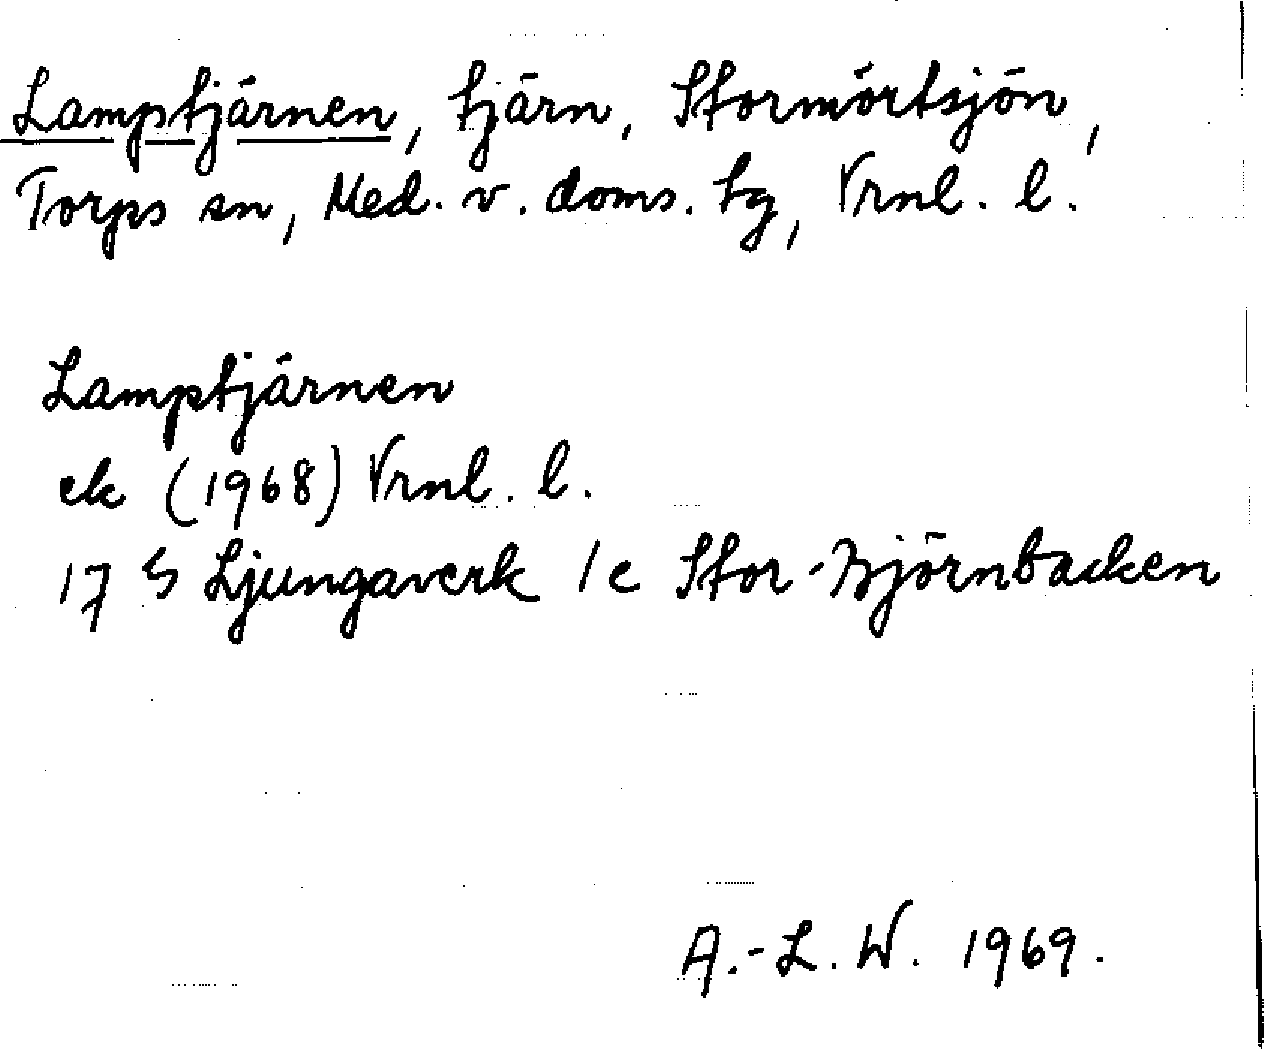 Lamptjärnen, tjärn, Stormörtsjön,
Torps sn, Med. v. doms. tg, Vrnl. l.
Lamptjärnen
ek (1968) Vrnl. l.
17 G Ljungaverk 1c Stor-Björnbacken
A.-L. W. 1969.